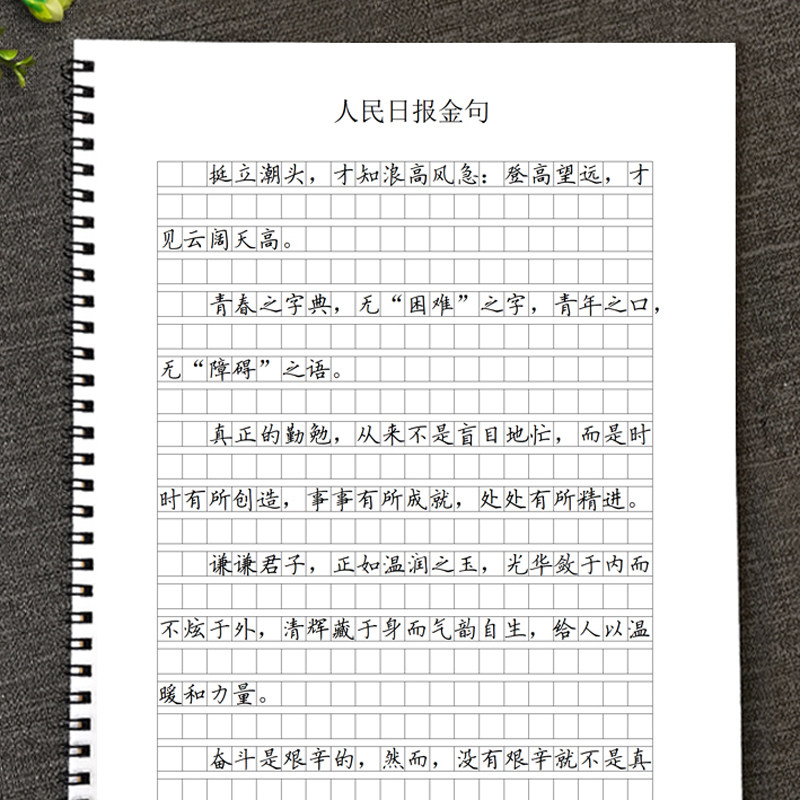 人民日报金句
挺立潮头，才知浪高风急：登高望远，才
见云阔天高。
青春之字典，无“困难”之字，青年之口，
无“障碍”之语。
真正的勤勉，从来不是盲目地忙，而是时
时有所创造，事事有所成就，处处有所精进。
谦谦君子，正如温润之玉，光华敛于内而
不炫于外，清辉藏于身而气韵自生，给人以温
暖和力量。
奋斗是艰辛的，然而，没有艰辛就不是真